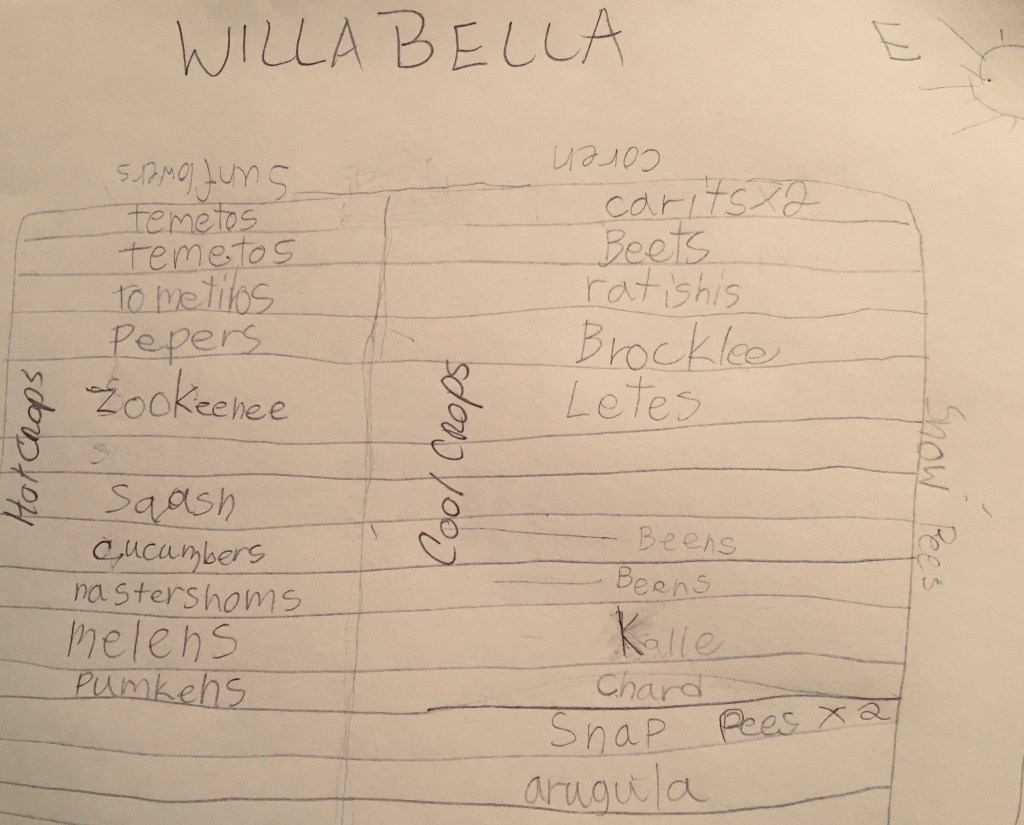 WILLA BELLA
E
Sunflowers
coren
temetos
carits x2
temetos
Beets
tometilos
ratishis
Pepers
Brocklee
Zookeenee
Letes
Hot Crops
Cool Crops
Snow Pees
s
Sqash
cucumbers
Beens
nastershoms
Beens
melens
Kalle
Pumkens
Chard
Snap Pees x2
arugula